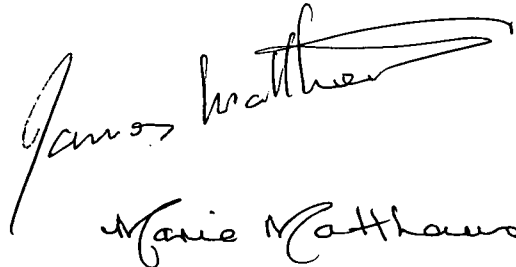 James Matthews
Marie Matthews